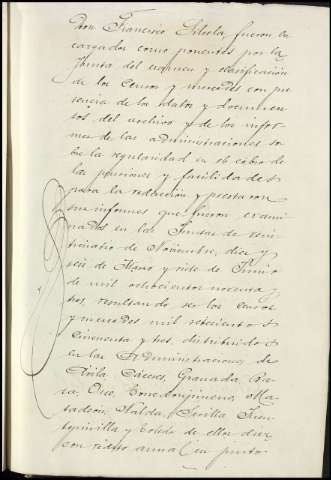 Don Francisco Silvela fueron en
cargados como ponentes por la
Junta del examen y clasificación
de los Censos y mercedes con pre
sencia de los datos y documen
tos del archivo y de los infor-
mes de las administraciones so
bre la regularidad en el cobro de
las pensiones y facilidades
para la redención y
sus informes que fueron exami
nados en las Juntas de vein
ticuatro de Noviembre, diez y
seis de Mayo y siete de Junio
de mil ochocientos noventa y
tres, resultando ser los censos
y mercedes mil setecientos
cincuenta y tres, distribuidos
en las Administraciones de
Avila, Cáceres, Granada, Ba
za, Orce, Torredonjimeno, Ma
tadeón, Nalda, Sevilla, Fuen
tiquivilla y Toledo de ellos diez
con rédito anual en junto